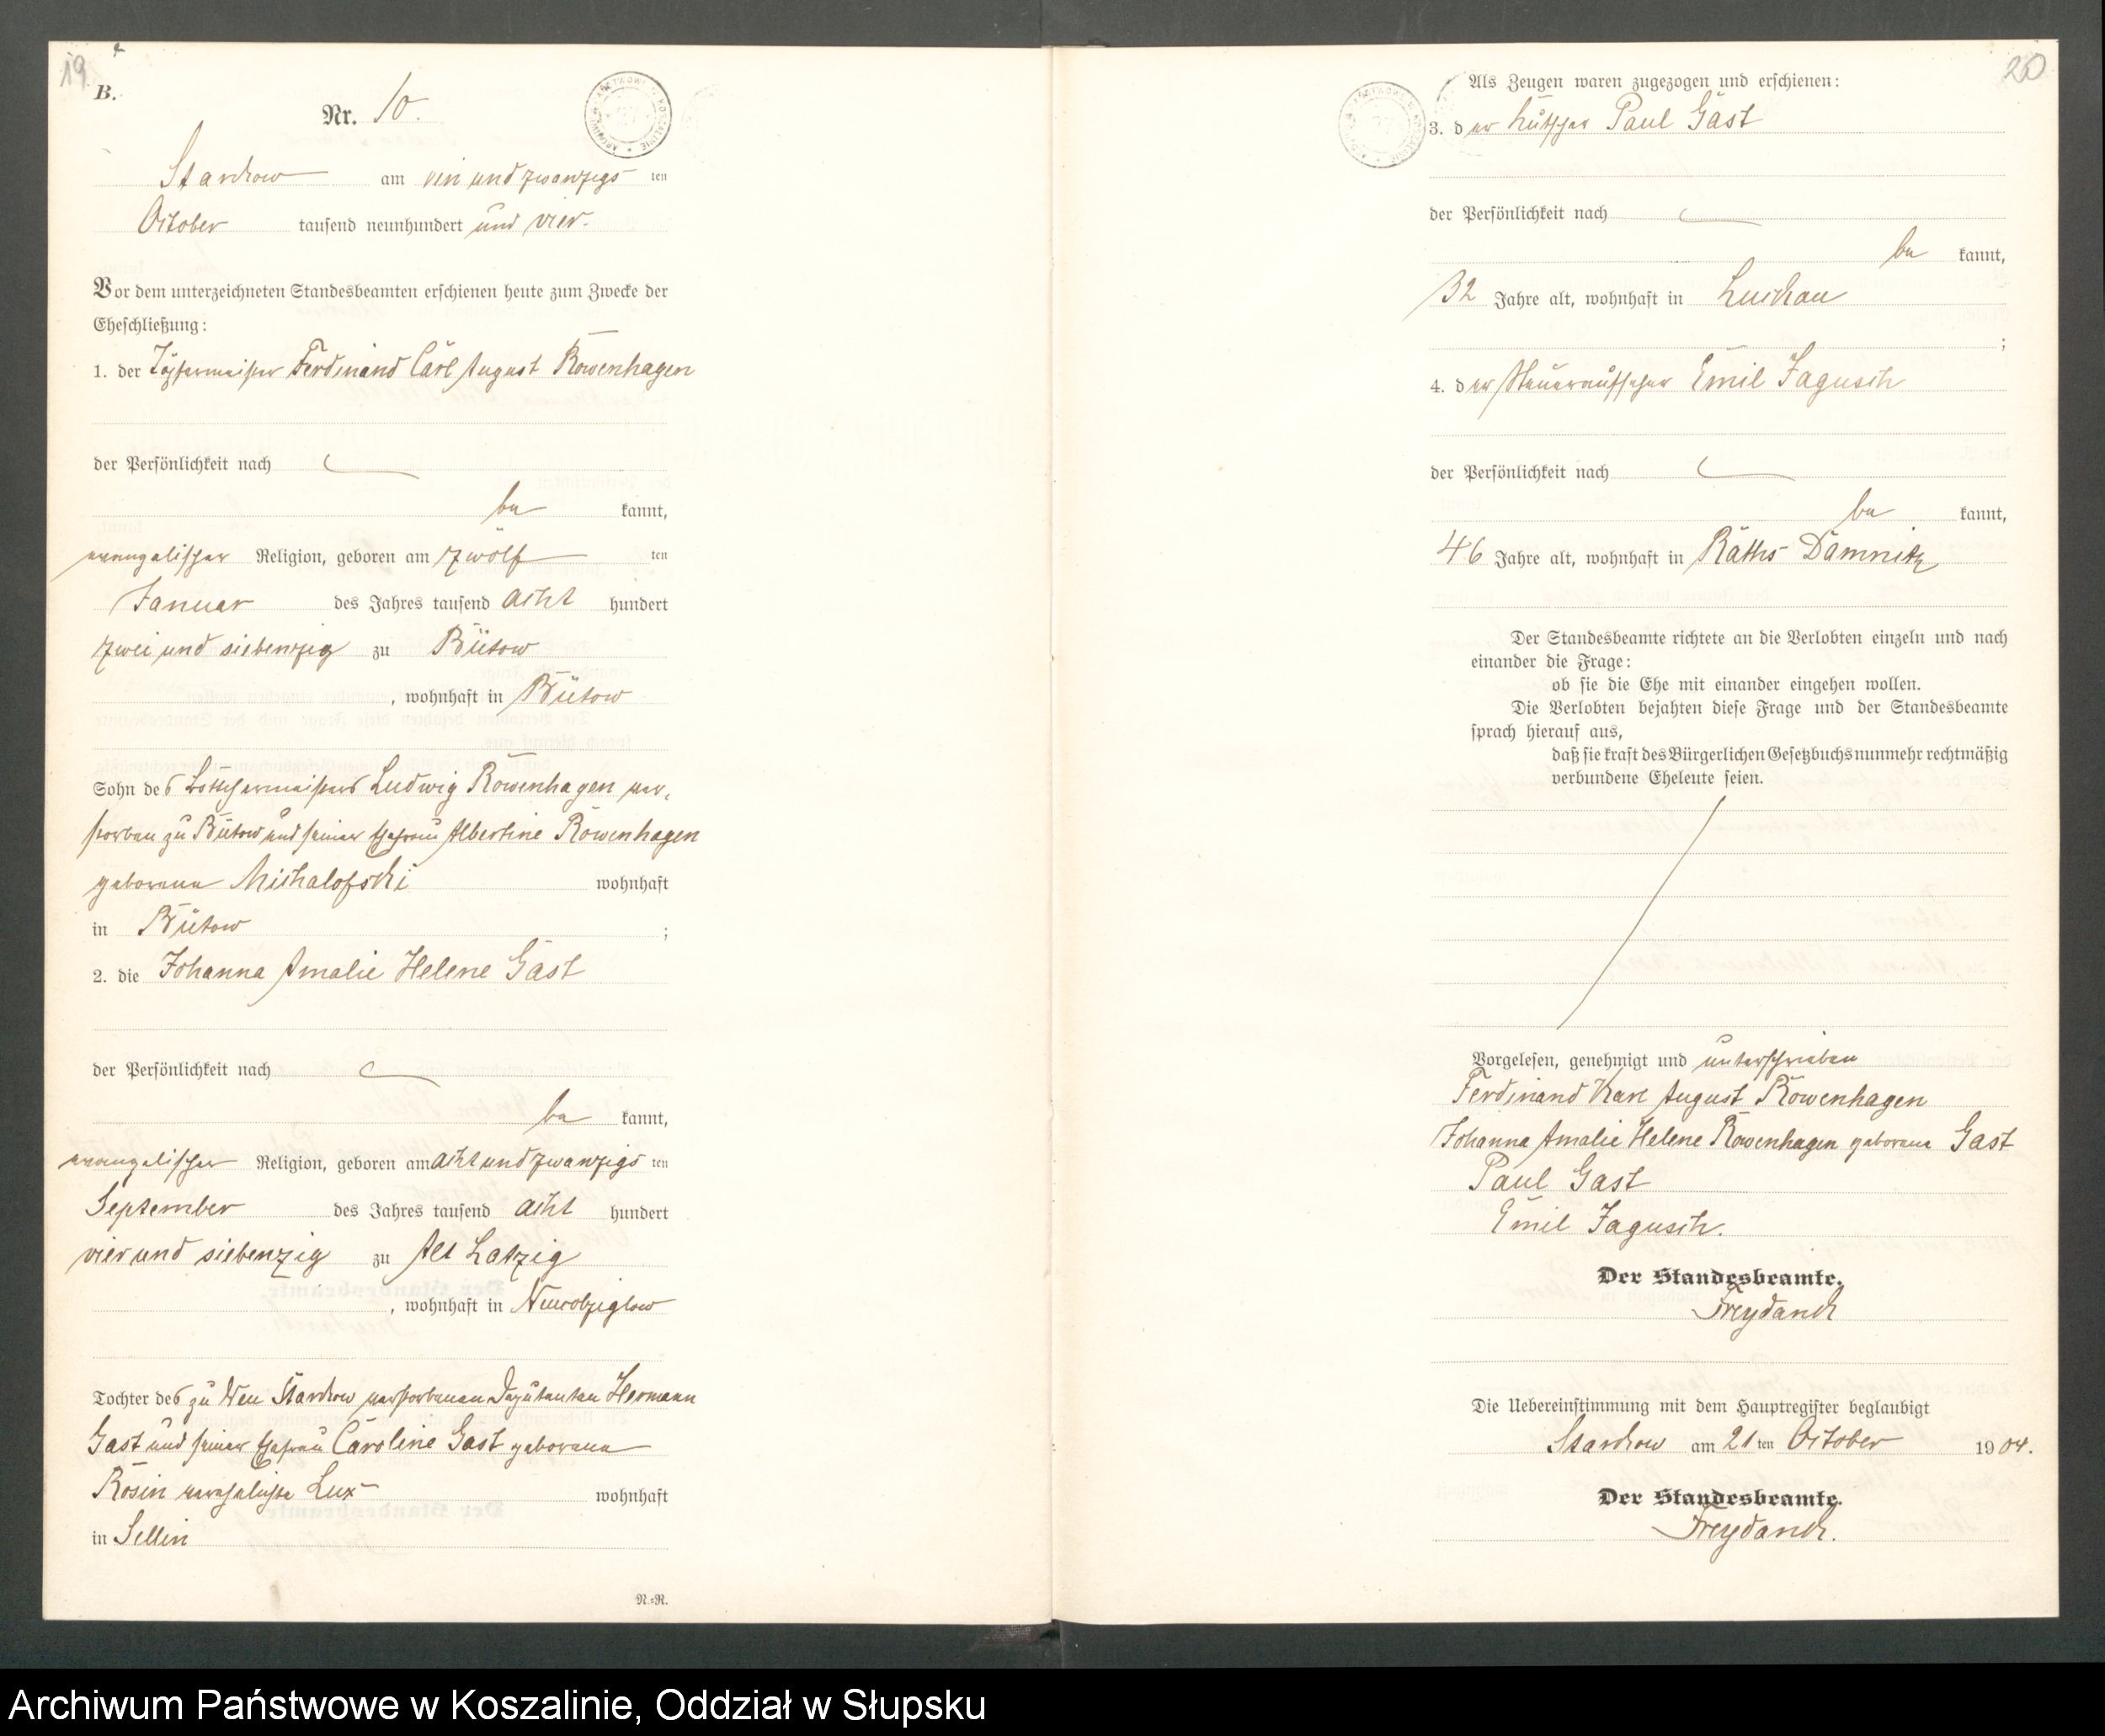 19
B.
Nr. 10.
Starckow am ein und zwanzigs ten
October tausend neunhundert und vier.
Vor dem unterzeichneten Standesbeamten erschienen heute zum Zwecke der
Eheschließung:
1. der Töpfermeister Ferdinand Carl August Röwenhagen
der Persönlichkeit nach
be kannt,
evangelischer Religion, geboren am zwölf ten
Januar des Jahres tausend acht hundert
zwei und siebenzig zu Bütow
, wohnhaft in Bütow
Sohn des Ludwig Röwenhagen ver-
storben zu Bütow und seiner Ehefrau Albertine Röwenhagen
geborene Michalofski wohnhaft
in Bütow ;
2. die Johanna Amalie Helene Gast
der Persönlichkeit nach
be kannt,
evangelischer Religion, geboren am acht und zwanzigs ten
September des Jahres tausend acht hundert
vier und siebenzig zu Alt Latzig
, wohnhaft in
Tochter des zu Neu Starckow verstorbenen Deputanten Hermann
Gast und seiner Ehefrau Caroline Gast geborene
Rosin verehelichte Lux wohnhaft
in Sellin
N.=R.
20
Als Zeugen waren zugezogen und erschienen:
3. der Kutscher Paul Gast
der Persönlichkeit nach
be kannt,
32 Jahre alt, wohnhaft in Luckau
;
4. der Steueraufseher Emil Jagusch
der Persönlichkeit nach
be kannt,
46 Jahre alt, wohnhaft in Raths-Damnitz
Der Standesbeamte richtete an die Verlobten einzeln und nach
einander die Frage:
ob sie die Ehe mit einander eingehen wollen.
Die Verlobten bejahten diese Frage und der Standesbeamte
sprach hierauf aus,
daß sie kraft des Bürgerlichen Gesetzbuchs nunmehr rechtmäßig
verbundene Eheleute seien.
Vorgelesen, genehmigt und unterschrieben
Ferdinand Karl August Röwenhagen
Johanna Amalie Helene Röwenhagen geborene Gast
Paul Gast
Emil Jagusch.
Der Standesbeamte.
Freydanck
Die Uebereinstimmung mit dem Hauptregister beglaubigt
Starckow am 21 ten October 1904.
Der Standesbeamte.
Freydanck.
Archiwum Państwowe w Koszalinie, Oddział w Słupsku